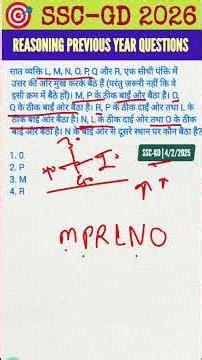 SSC-GD 2026
REASONING PREVIOUS YEAR QUESTIONS
सात व्यक्ति L, M, N, O, P, Q और R, एक सीधी पंक्ति में
उत्तर की ओर मुख करके बैठे हैं (परंतु जरूरी नहीं कि वे
इसी क्रम में बैठे हों)। M, P के ठीक बाईं ओर बैठा है। Q,
O के ठीक बाईं ओर बैठा है। R, P के ठीक दाईं ओर तथा L के
ठीक बाईं ओर बैठा है। N, L के ठीक दाईं ओर तथा O के ठीक
बाईं ओर बैठा है। N के बाईं ओर से दूसरे स्थान पर कौन बैठा है?
1. O
2. P
3. M
4. R
SSC-GD | 4/2/2025
M P R L N O